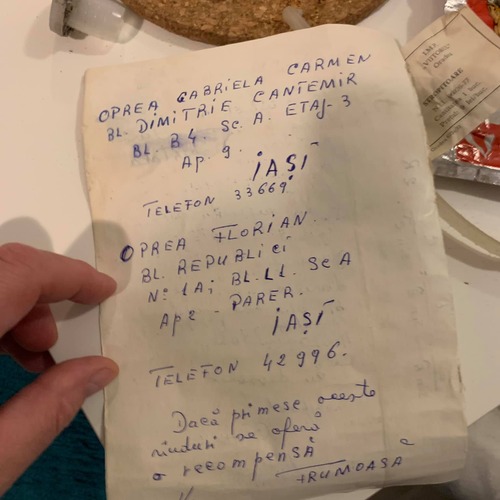 OPREA GABRIELA CARMEN
BL. DIMITRIE CANTEMIR
BL. B4. Sc. A. ETAJ-3
Ap 9.
IAȘI
TELEFON 33669
OPREA FLORIAN
BL. REPUBLICI
No 1A; BL. L1. Sc A
Ap 2 - PARER.
IAȘI
TELEFON 42996.
Dacă primesc aceste
rinduri se oferă
o recompensă
FRUMOASĂ